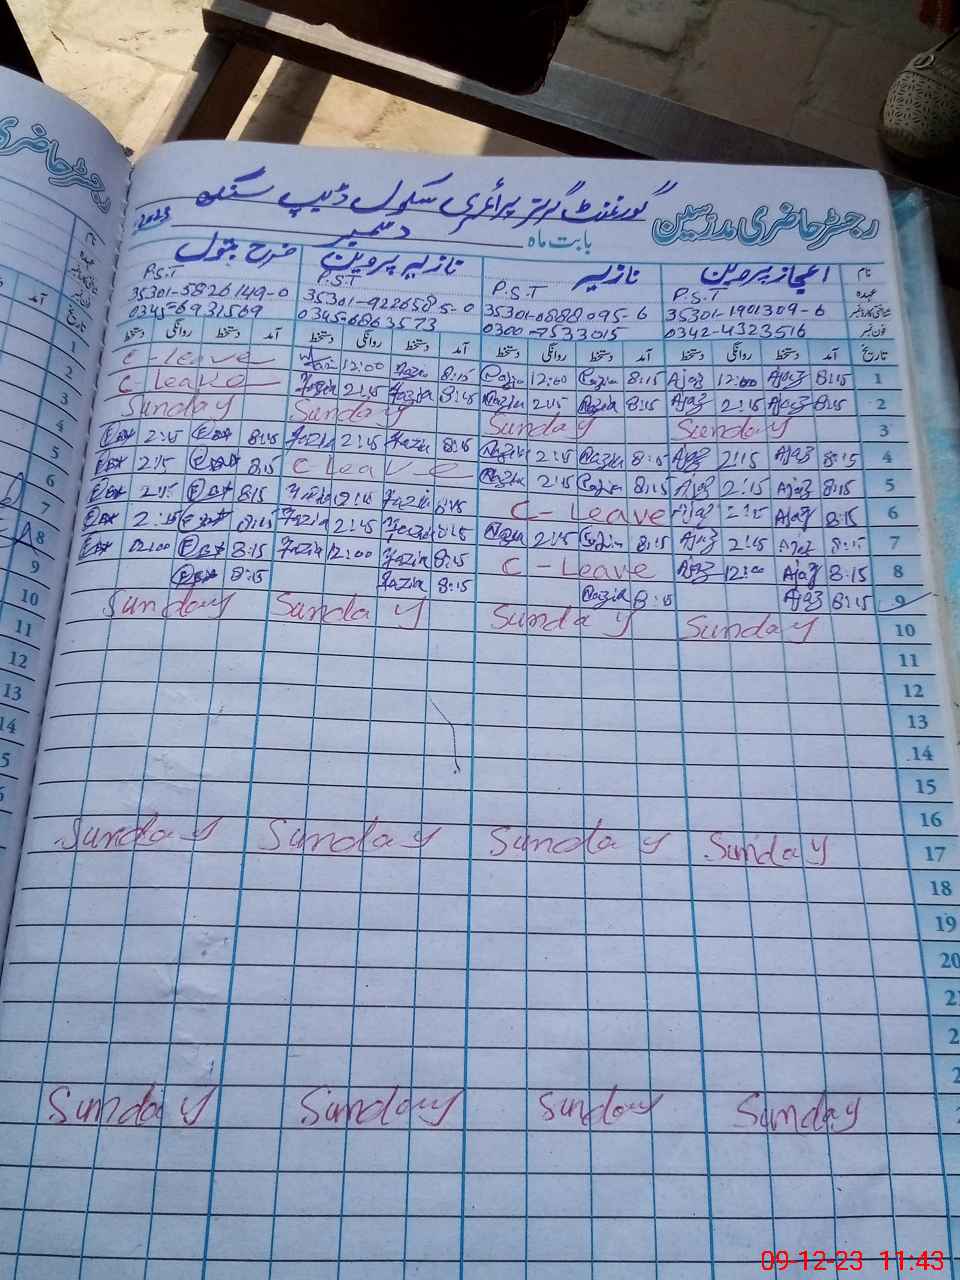 رجسٹر حاضری مدرسین
گورنمنٹ گرلز پرائمری سکول ڈیپ سنگھ
بابت ماہ دسمبر 2023
نام اعجاز پروین نازیہ نازیہ پروین فرح بتول
عہدہ P.S.T P.S.T P.S.T P.S.T
35301-1901309-6 35301-0888095-6 35301-9226585-0 35301-5826149-0
فون نمبر 0342-4323516 0300-7533015 0345-6863573 0345-6931569
تاریخ آمد دستخط روانگی دستخط آمد دستخط روانگی دستخط آمد دستخط روانگی دستخط آمد دستخط روانگی دستخط
1 8:15 Ajaz 12:00 Ajaz 8:15 Nazia 12:00 Nazia 8:15 Nazia 12:00 C-leave
2 8:15 Ajaz 2:15 Ajaz 8:15 Nazia 2:15 Nazia 8:15 Nazia 2:15 Nazia C-leave
3 Sunday Sunday Sunday Sunday
4 8:15 Ajaz 2:15 Ajaz 8:15 Nazia 2:15 Nazia 8:15 Nazia 2:15 Nazia 8:15 2:15
5 8:15 Ajaz 2:15 Ajaz 8:15 Nazia 2:15 Nazia C-Leave 8:15 2:15
6 8:15 Ajaz 2:15 Ajaz C-Leave 8:15 Nazia 2:15 Nazia 8:15 2:15
7 8:15 Ajaz 2:15 Ajaz 8:15 Nazia 2:15 Nazia 8:15 Nazia 2:15 Nazia 8:15 2:15
8 8:15 Ajaz 12:00 Ajaz C-Leave 8:15 Nazia 12:00 Nazia 8:15 12:00
9 8:15 Ajaz 8:15 Nazia 8:15 Nazia 8:15
10 Sunday Sunday Sunday Sunday
11
12
13
14
15
16
17 Sunday Sunday Sunday Sunday
18
19
20
Sunday Sunday Sunday Sunday
رجسٹر حاضری
آمد
1
2
3
4
5
6
7
8
9
10
11
12
13
14
09-12-23 11:43